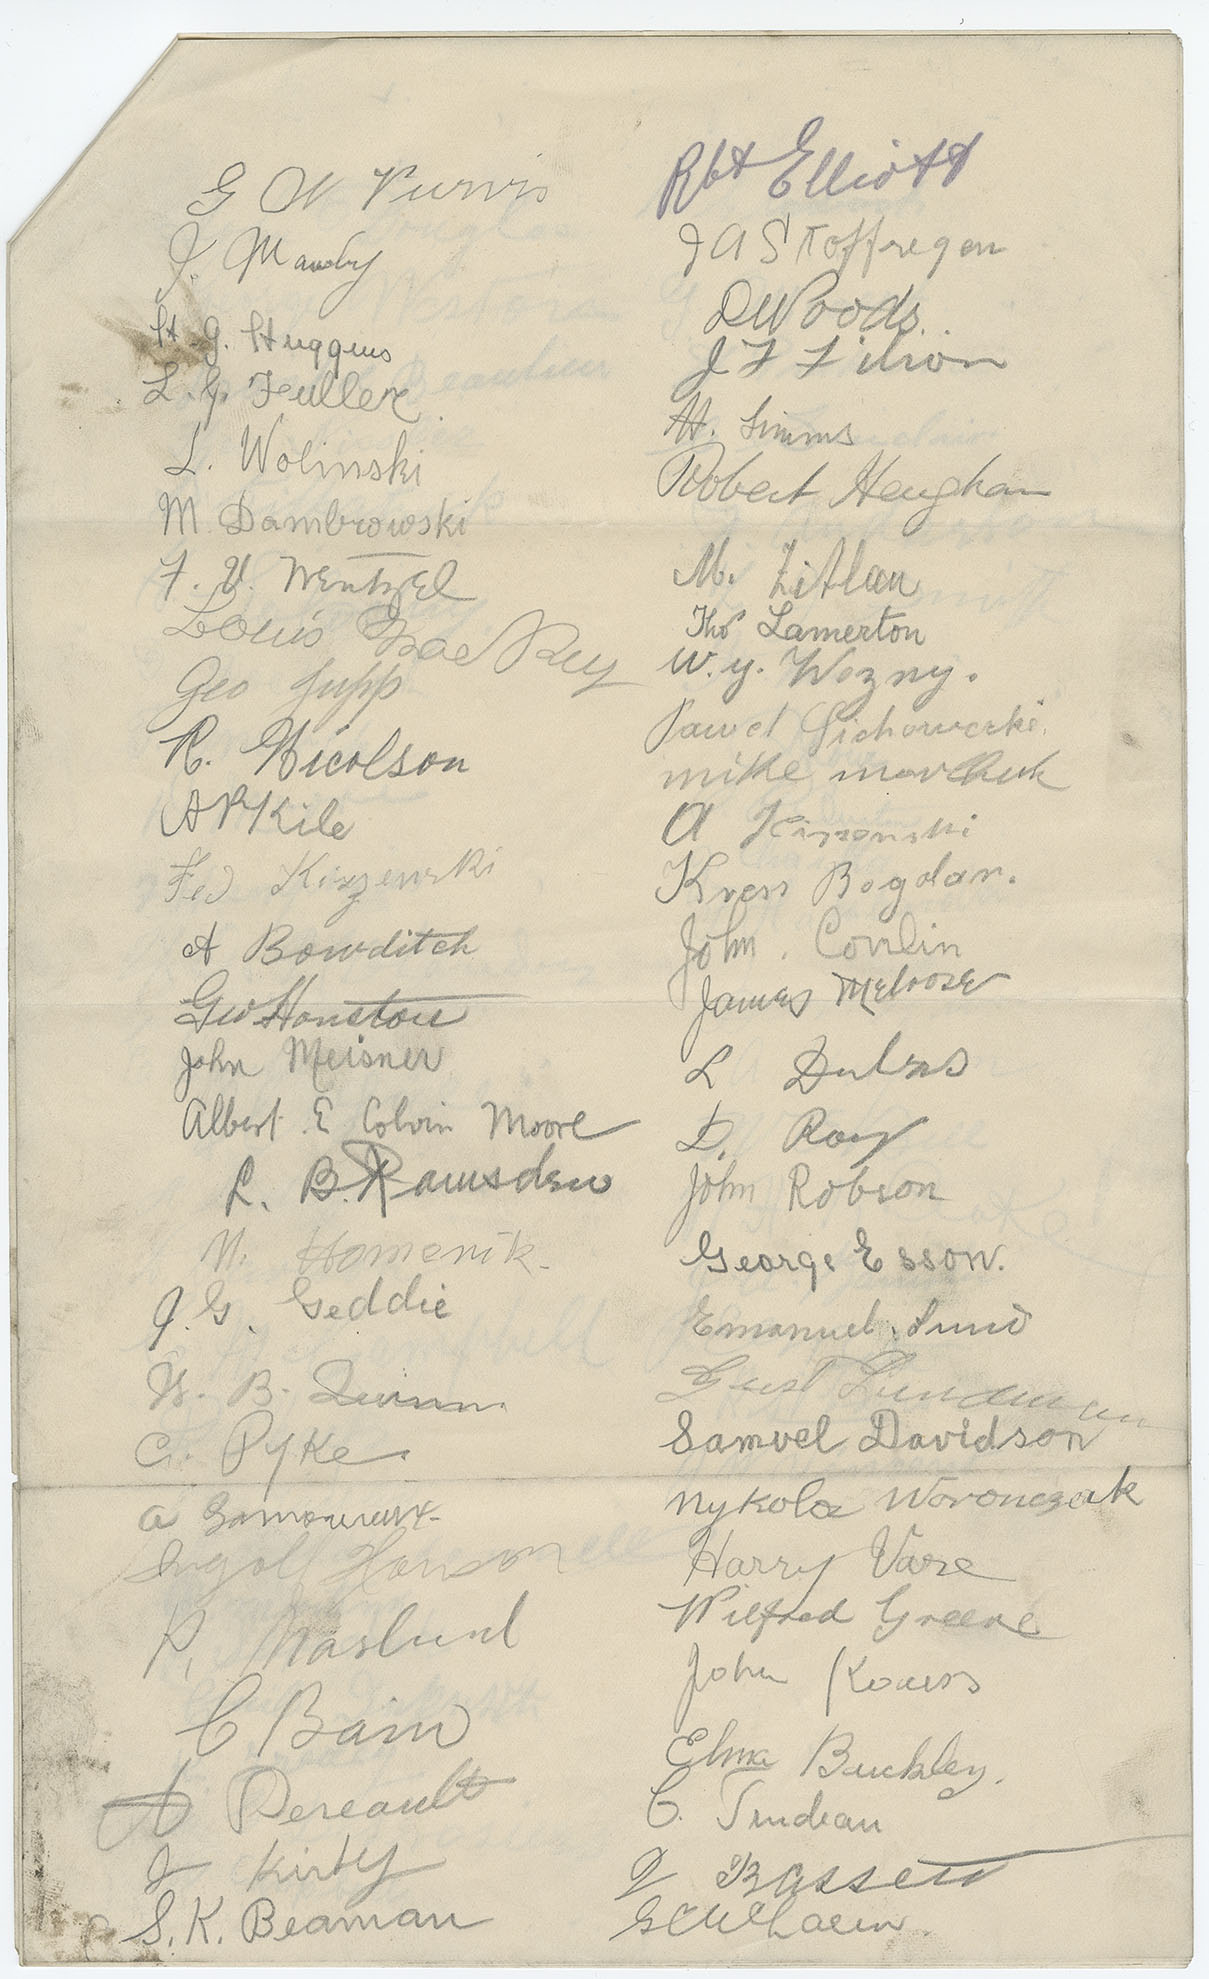 G W Purvis
J. Mawby
H. G. Huggins
L. G. Fuller
L. Wolinski
M Dambrowski
F. V. Wentzel
Louis
Geo Jupp
R. Nicolson
A P Kile
Fed Kiszewski
A Bowditch
Geo Houston
John Meisner
Albert E Colvin Moore
L. B. Ramsden
N. Homenik
J. G. Geddie
W. B. Quinn
G. Pyke
a
Ingolf Hanson
P. Haslund
C Bain
A Pereault
J Kirby
S. K. Beaman
Rbt Elliott
J A Stoffregen
D Woods
J F Filion
H. Simms
Robert Heughan
M. Zitlau
Tho Lamerton
W. Y. Wozny.
Pawel
mike
A
Kress Bogdan.
John Conlin
James Melrose
L
D. Roy
John Robson
George Esson.
Emanuel
Gust Lundman
Samuel Davidson
Nykola Woronczak
Harry Vare
Wilfred Greene
John
Buckley.
C. Trudeau
J Bassett